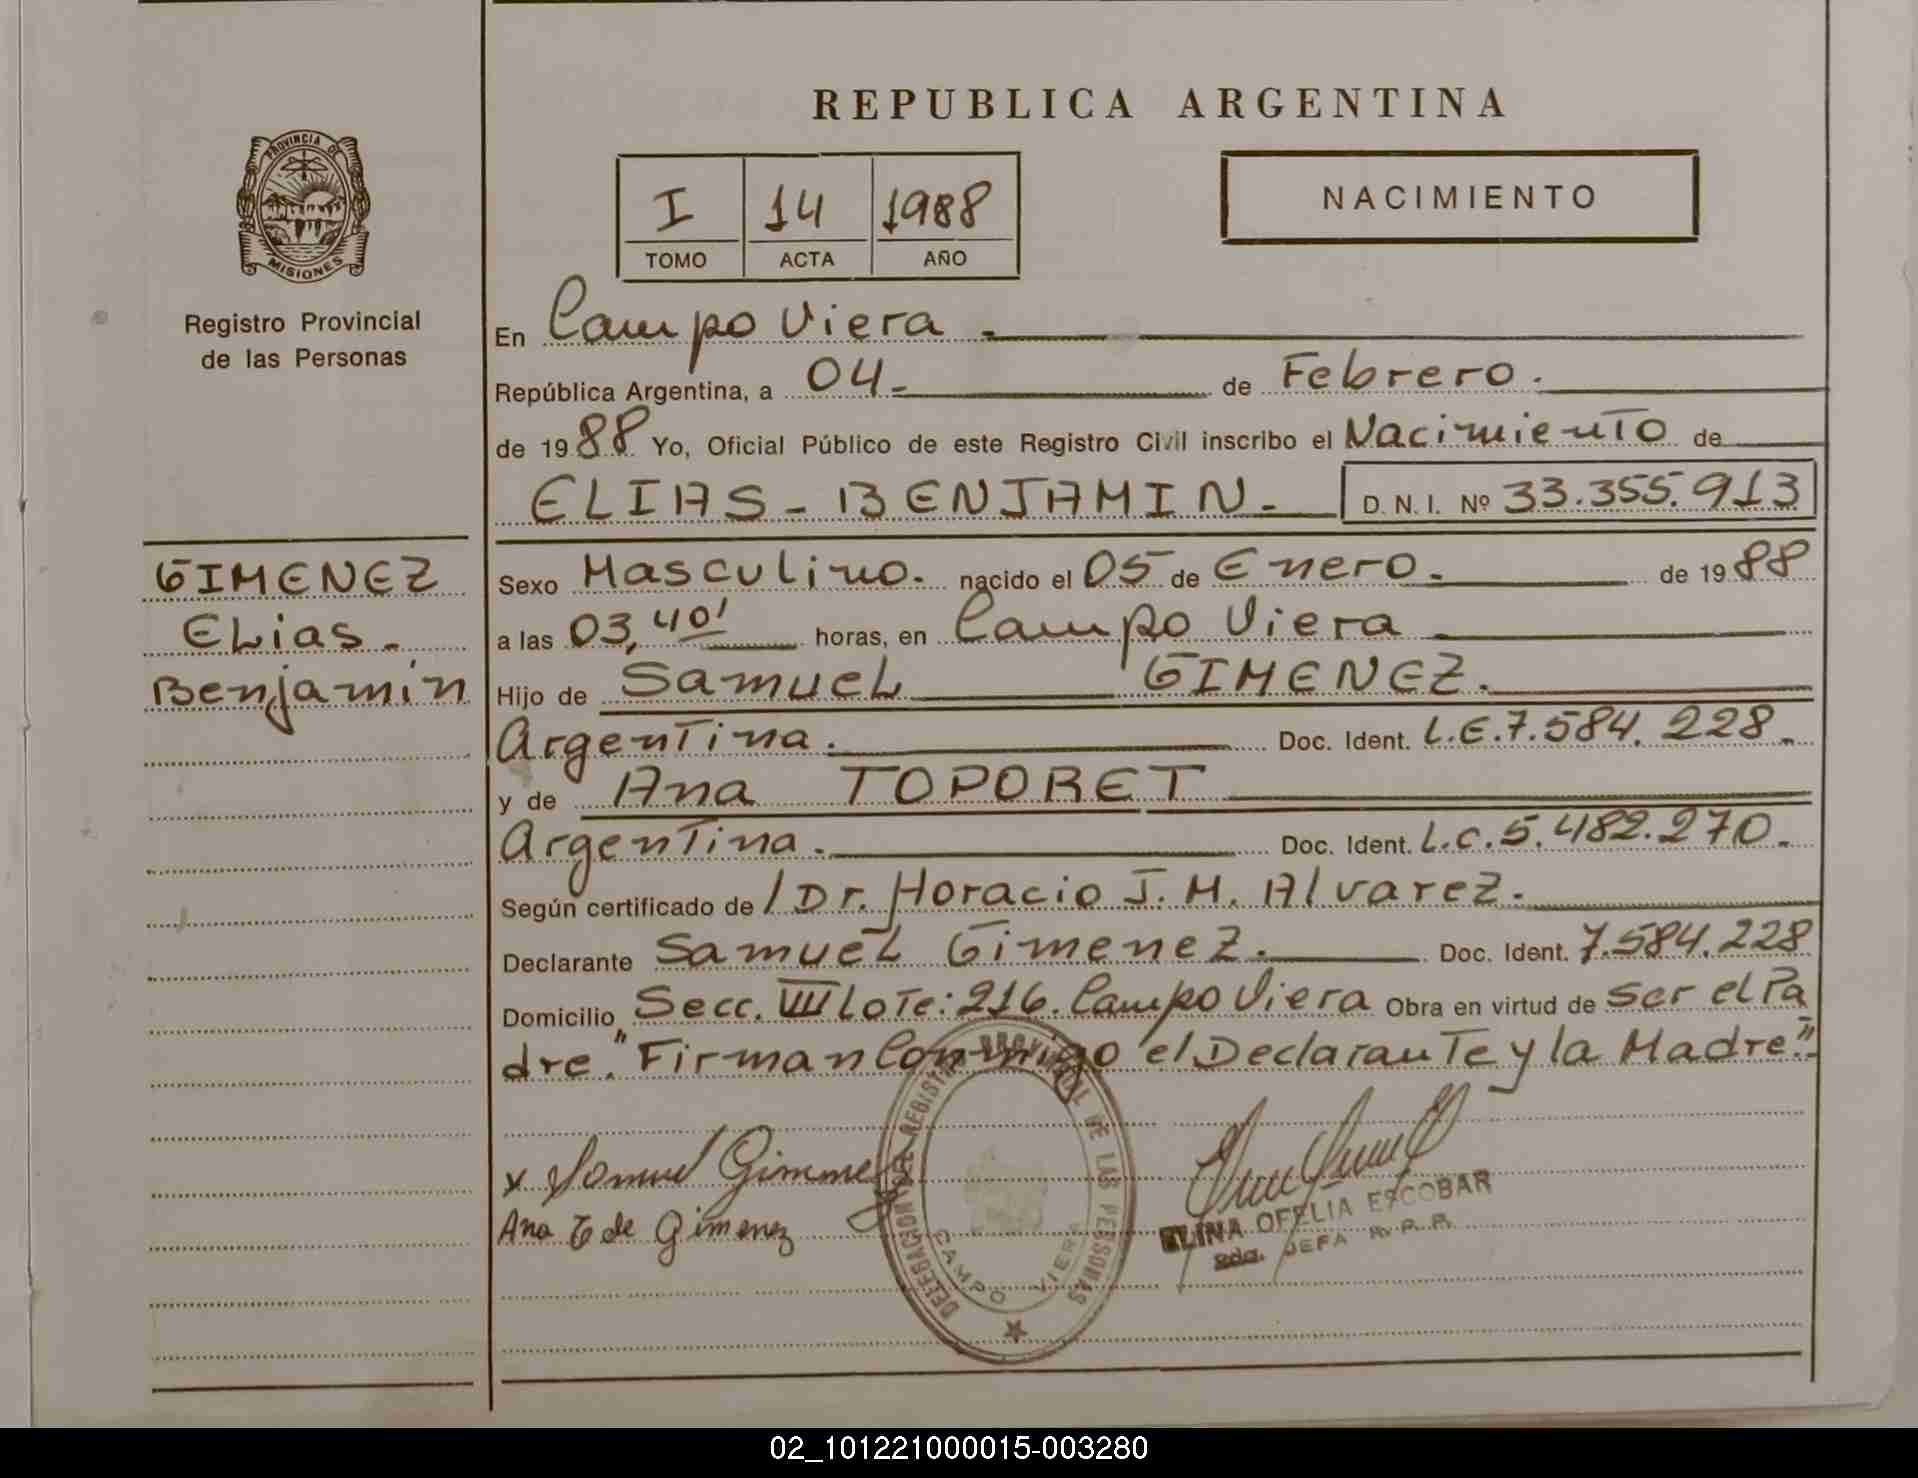 REPUBLICA ARGENTINA
PROVINCIA DE
MISIONES
Registro Provincial
de las Personas
I 14 1988
TOMO ACTA AÑO
NACIMIENTO
En Campo Viera.
República Argentina, a 04. de Febrero.
de 1988 Yo, Oficial Público de este Registro Civil inscribo el Nacimiento de
ELIAS - BENJAMIN. D. N. I. Nº 33.355.913
GIMENEZ
Elias.
Benjamín
Sexo Masculino. nacido el 05 de Enero. de 1988
a las 03,40' horas, en Campo Viera
Hijo de Samuel GIMENEZ.
Argentina. Doc. Ident. L.E.7.584.228.
y de Ana TOPORET
Argentina. Doc. Ident. L.C.5.482.270.
Según certificado de / Dr. Horacio J. M. Alvarez.
Declarante Samuel Gimenez. Doc. Ident. 7.584.228
Domicilio Secc. VIII Lote: 216. Campo Viera Obra en virtud de ser el Pa
dre. "Firman Conmigo el Declarante y la Madre".
x Samuel Gimenez
Ana T de Gimenez
DELEGACION DEL REGISTRO PROVINCIAL DE LAS PERSONAS
CAMPO VIERA
ELINA OFELIA ESCOBAR
2da. JEFA R. P. P.
02_101221000015-003280